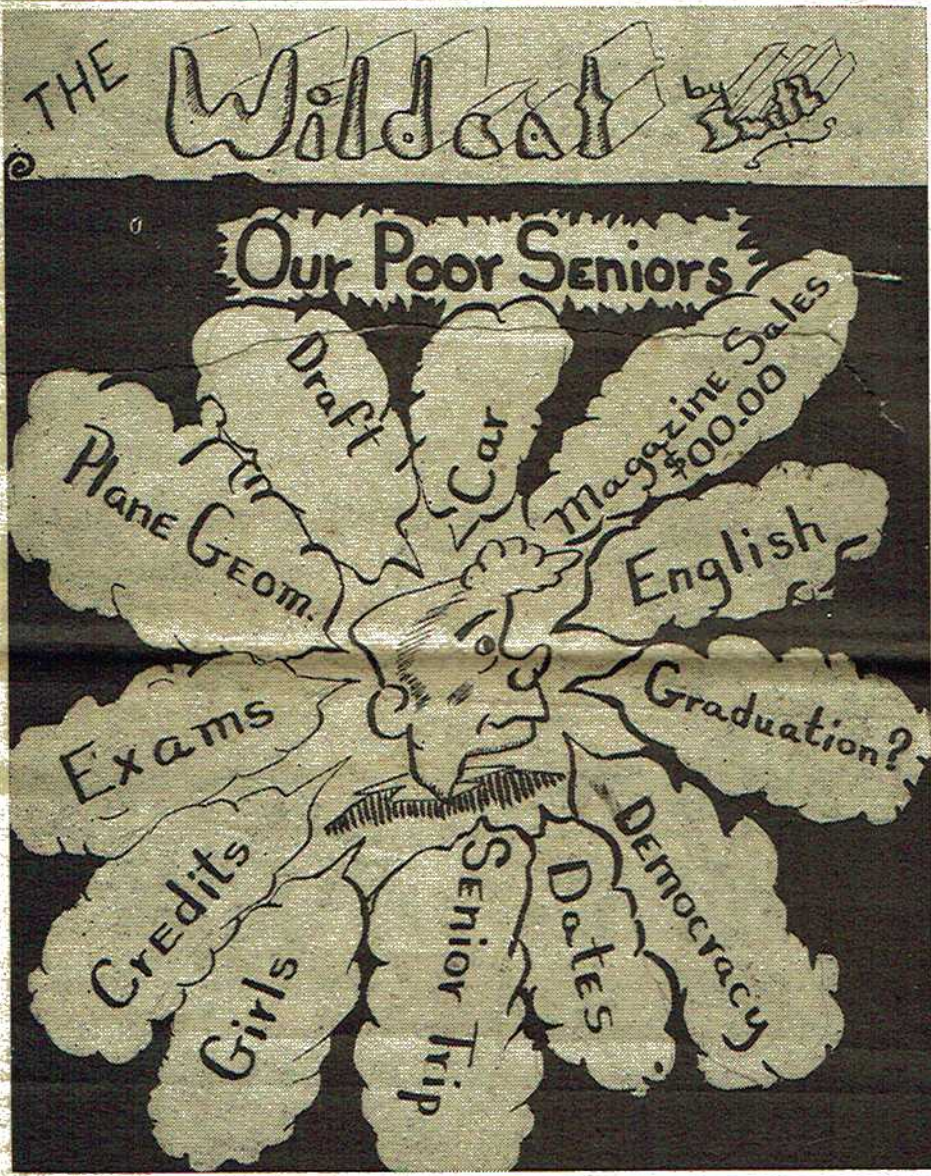 THE Wildcat by
Our Poor Seniors
Plane Geom.
Draft
Car
Magazine Sales
$00.00
English
Graduation?
Democracy
Dates
Senior Trip
Girls
Credits
Exams